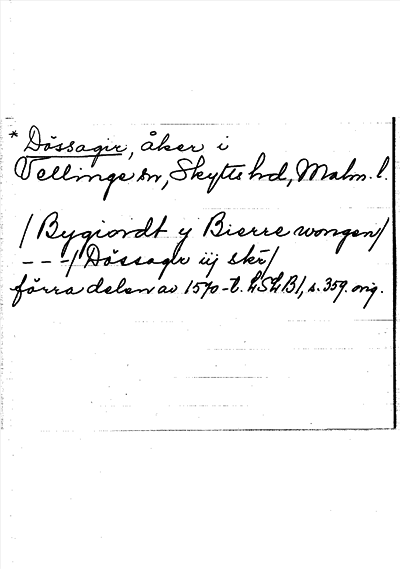 * Dössagir, åker i
Vellinge sn, Skytts hd, Malm. l.
/ Bygiordt y Bierre wongen/
- - -/ Dössagr iij skr/
förra delen av 1570-t. LSLB1, s. 359. orig.